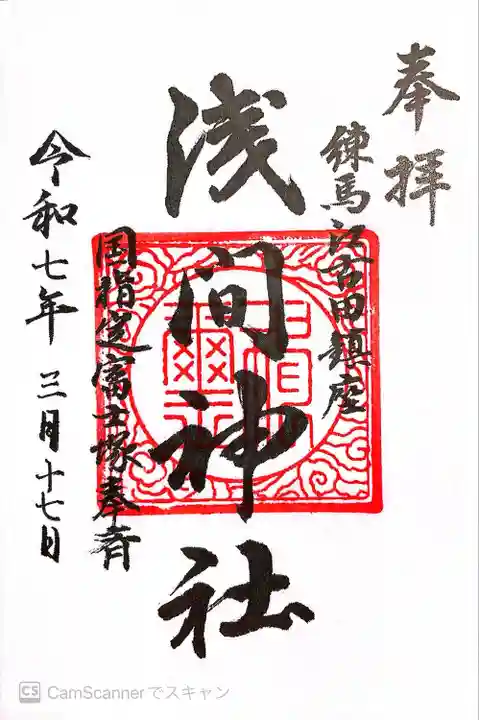 奉拝
練馬江古田鎮座
浅間神社
国指定富士塚奉斎
令和七年 三月十七日
CS CamScannerでスキャン